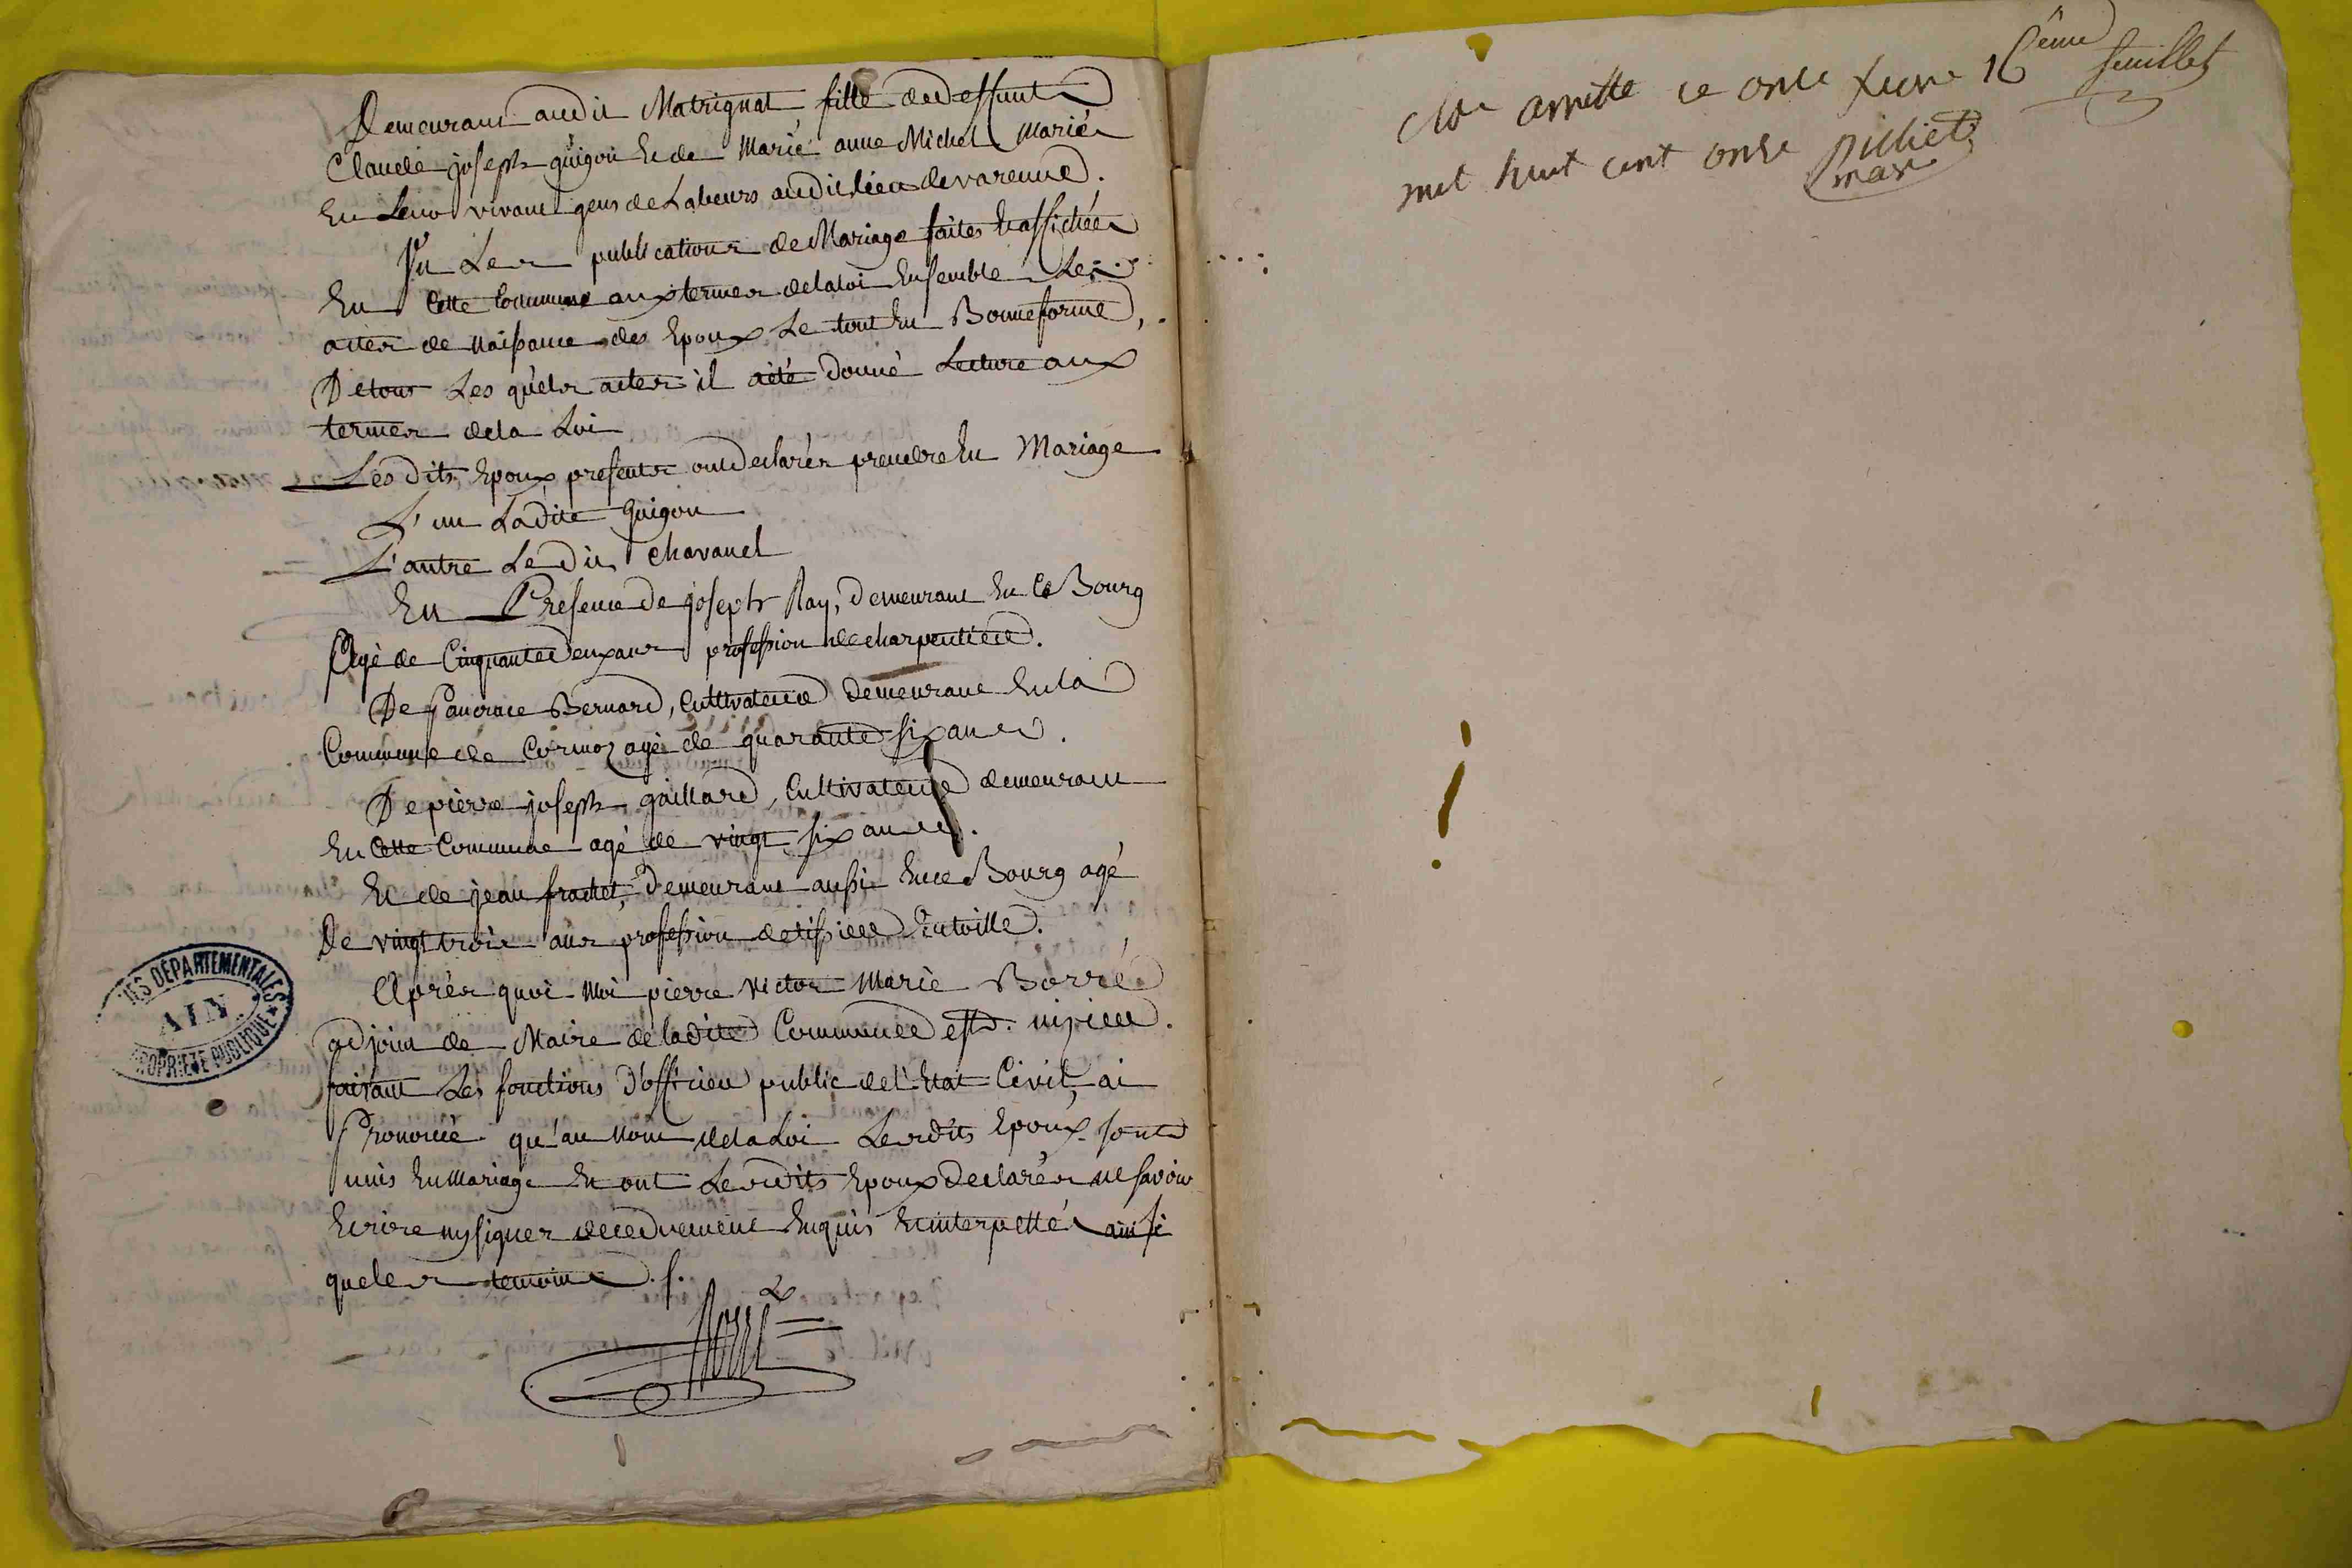 Demeurant audit Matrignat fille de deffunt
Claude joseph guigon Et de Marie anne Michel Mariés
En Leur vivant gens de Labeurs audit lieu de varenne.
Vu Les publications de Mariage faites Et affichées
En Cette Commune aux termes de la loi Ensemble Les
actes de naissance des Epoux Le tout En Bonne forme,
De tous Les quels actes il a été donné Lecture aux
termes de la Loi
Les Dits Epoux presents ont declarés prendre En Mariage
L'un Ladite Guigon
L'autre Le Dit Chavanel
En Presence de joseph Ray, Demeurant En Ce Bourg
Agé de Cinquante deux ans profession de charpentier.
De Pancrace Bernard, Cultivateur Demeurant En la
Commune de Cormoz agé de quarante six ans.
De pierre joseph gaillard, Cultivateur demeurant
En Cette Commune agé de vingt six ans.
Et de jean frachet, Demeurant aussi En ce Bourg agé
De vingt trois ans profession de tissier En toille.
Après quoi Moi pierre victor Marie Borré
adjoint de Maire de ladite Commune
faisant Les fonctions D'officier public de l'Etat Civil, ai
Prononcé qu'au Nom de la Loi Lesdits Epoux sont
unis En Mariage Et ont Lesdits Epoux Declarés ne savoir
Ecrire ny signer de ce duement Enquis Et interpellés ainsi
que les temoins.
Borré
IES DÉPARTEMENTALES
AIN
PROPRIÉTÉ PUBLIQUE
16ème feuillet
Clos arretté ce onze
mil huit cent onze
maire